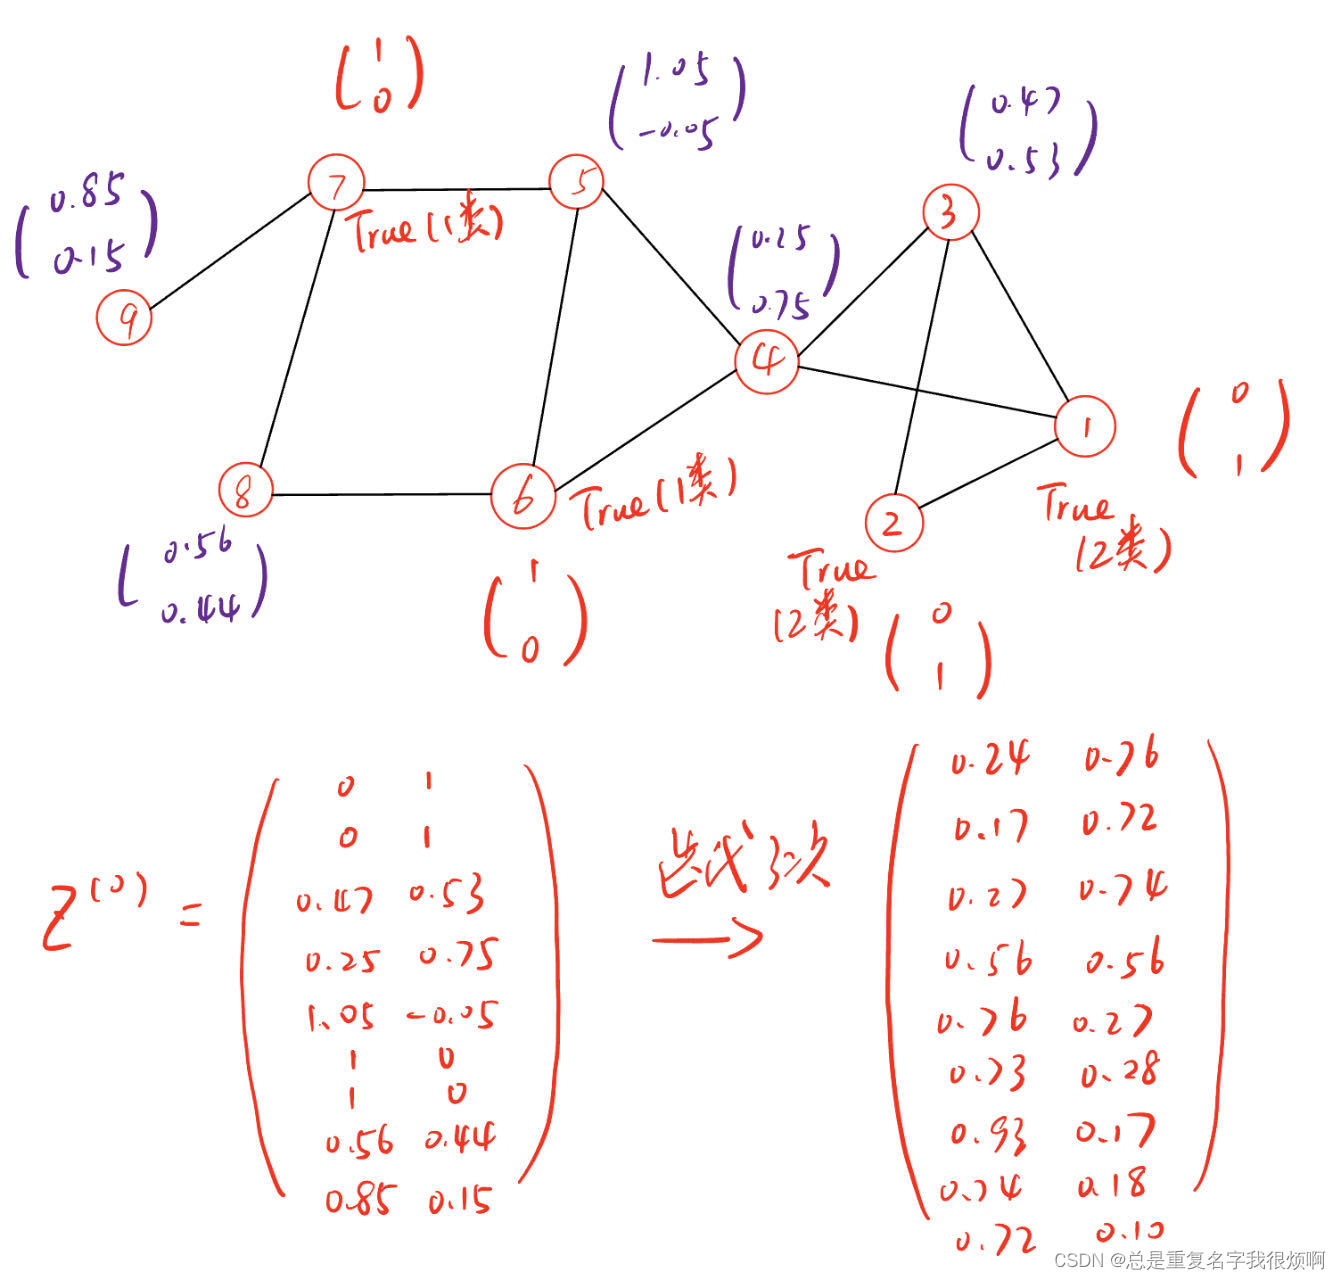 (1
0)
(1.05
-0.05)
(0.47
0.53)
(0.85
0.15)
7
5
3
True (1类)
(0.25
0.75)
9
4
(0
1)
1
8
6
True (1类)
2
True
(2类)
(0.56
0.44)
True
(2类)
(0
1)
(1
0)
Z(0) =
0 1
0 1
0.47 0.53
0.25 0.75
1.05 -0.05
1 0
1 0
0.56 0.44
0.85 0.15
迭代3次
→
0.24 0.76
0.17 0.72
0.27 0.74
0.56 0.56
0.76 0.27
0.73 0.28
0.93 0.17
0.74 0.18
0.72 0.10
CSDN @总是重复名字我很烦啊